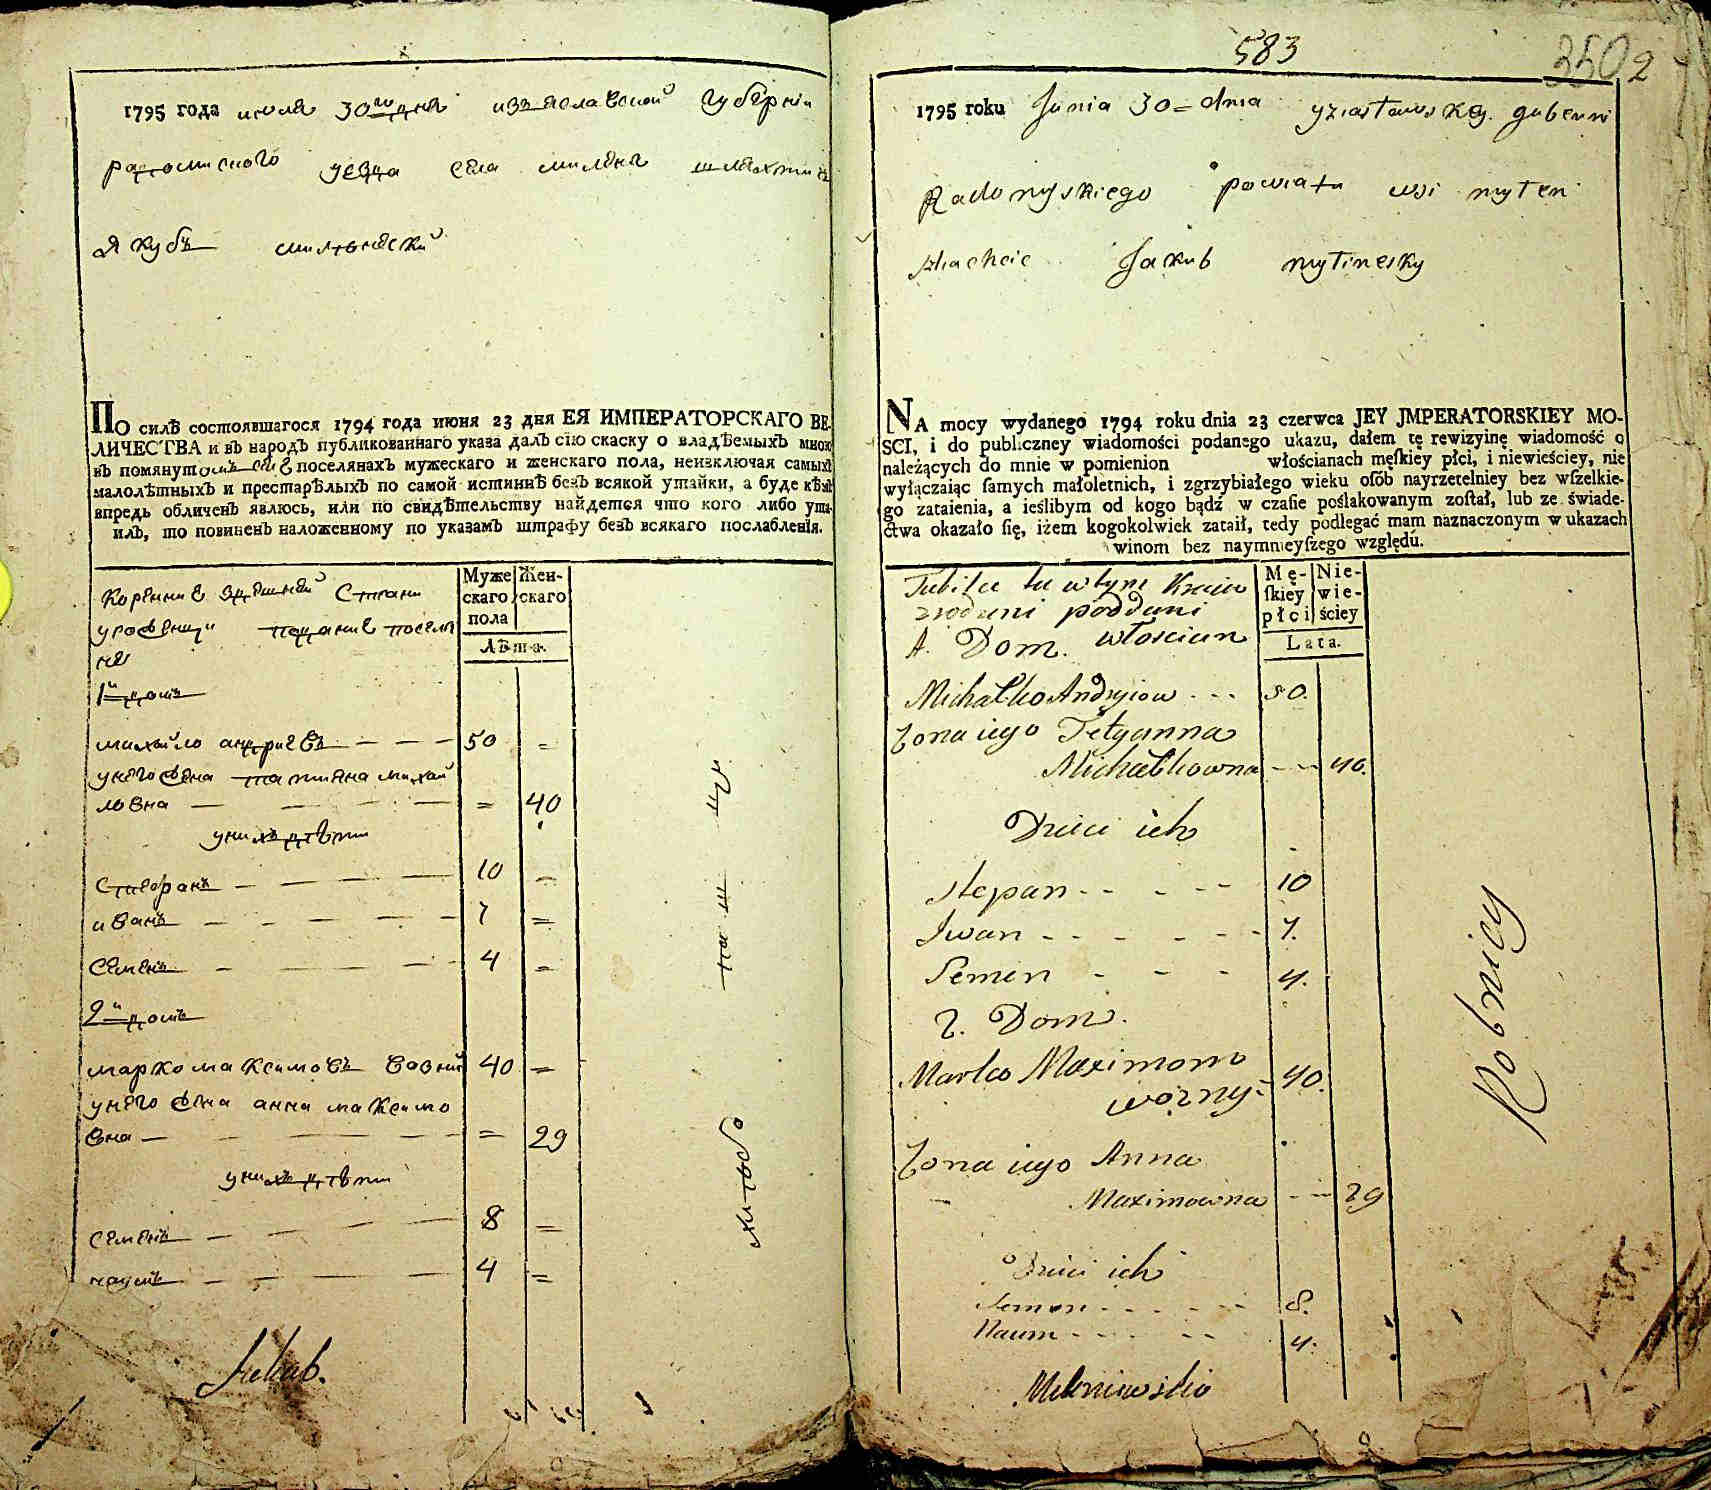 1795 года июня 30го дня изъяславской губерніи
радомиского уезда села милени шляхтичъ
Якубъ
ПО силѣ состоявшагося 1794 года июня 23 дня ЕЯ ИМПЕРАТОРСКАГО ВЕ-
ЛИЧЕСТВА и въ народъ публикованнаго указа далъ сію скаску о владѣемыхъ мною
въ помянутомъ селе поселянахъ мужескаго и женскаго пола, неизключая самыхъ
малолѣтныхъ и престарѣлыхъ по самой истиннѣ безъ всякой утайки, а буде кѣмъ
впредь обличенъ явлюсь, или по свидѣтельству найдется что кого либо ута-
илъ, то повиненъ наложенному по указамъ штрафу безъ всякаго послабленія.
Муже|Жен-
скаго|скаго
пола
Лѣта.
коренние здешней страни
уроженци подание поселя
не
1й домъ
михайло андриевъ 50 =
унего жена татияна михай
ловна = 40
унихъ дѣти
Стефанъ 10 =
иванъ 7 =
Семенъ 4 =
2й домъ
марко максимовъ возний 40 =
унего жена анна максимо
вна = 29
унихъ дѣти
семенъ 8 =
наумъ 4 =
Jakub.
583
3502
1795 roku Junia 30 = dnia gubernii
Radomyskiego powiatu wsi myłen
szlachcic Jakub
NA mocy wydanego 1794 roku dnia 23 czerwca JEY JMPERATORSKIEY MO-
SCI, i do publiczney wiadomości podanego ukazu, dałem tę rewizyinę wiadomość o
należących do mnie w pomienion włościanach męſkiey płci, i niewieściey, nie
wyłączaiąc ſamych małoletnich, i zgrzybiałego wieku oſób nayrzetelniey bez wſzelkie-
go zataienia, a ieślibym od kogo bądź w czaſie poślakowanym zoſtał, lub ze świade-
ctwa okazało ſię, iżem kogokolwiek zataił, tedy podlegać mam naznaczonym w ukazach
winom bez naymnieyſzego względu.
Mę-|Nie-
ſkiey|wie-
płci|ściey
Lata.
tu w tym Kraiu
zrodzeni poddani
włoscian
1. Dom.
Michałko Andryiow 50.
Zona iego Tetyanna
Michałkowna 40.
Dzieci ich
Stepan 10
Iwan 7.
Semen 4.
2. Dom.
Marko Maximow
wozny 40.
Zona iego Anna
Maximowna 29
Dzieci ich
Semen 8.
Naum 4.
Robnicy